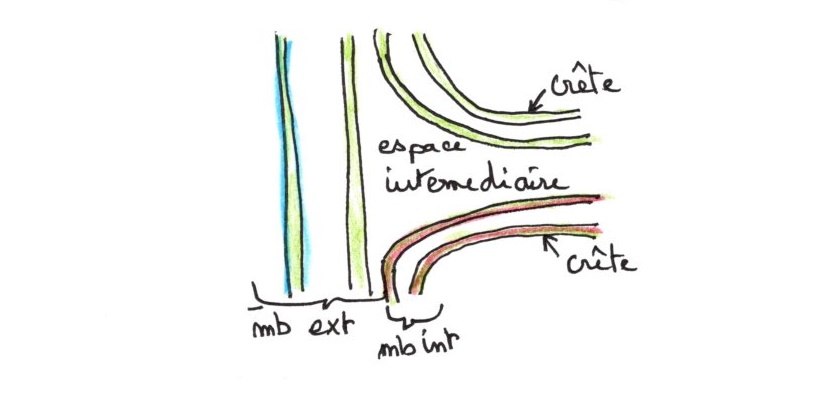 crête
espace
intermediaire
crête
mb ext
mb int